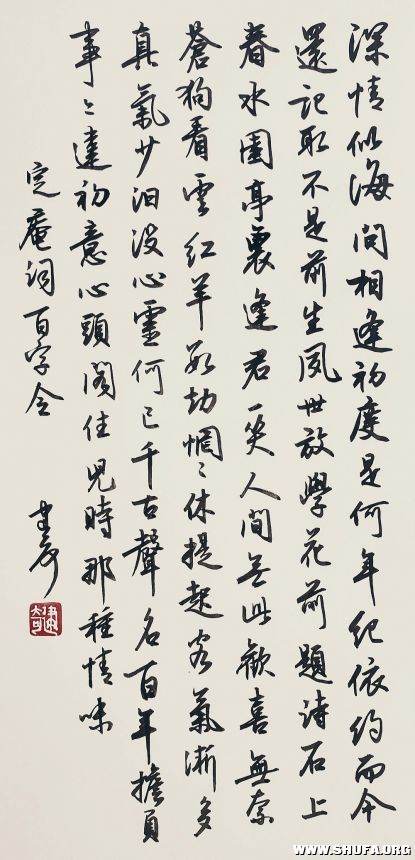 深情似海問相逢初度是何年紀依約而今
還記取不是前生夙世放學花前題詩石上
春水園亭裏逢君一笑人間无此歡喜無奈
蒼狗看雲紅羊數劫惘〻休提起客氣漸多
真氣少汩沒心靈何已千古聲名百年擔負
事〻違初意心頭閣住兒時那種情味
定庵詞百字令
WWW.SHUFA.ORG